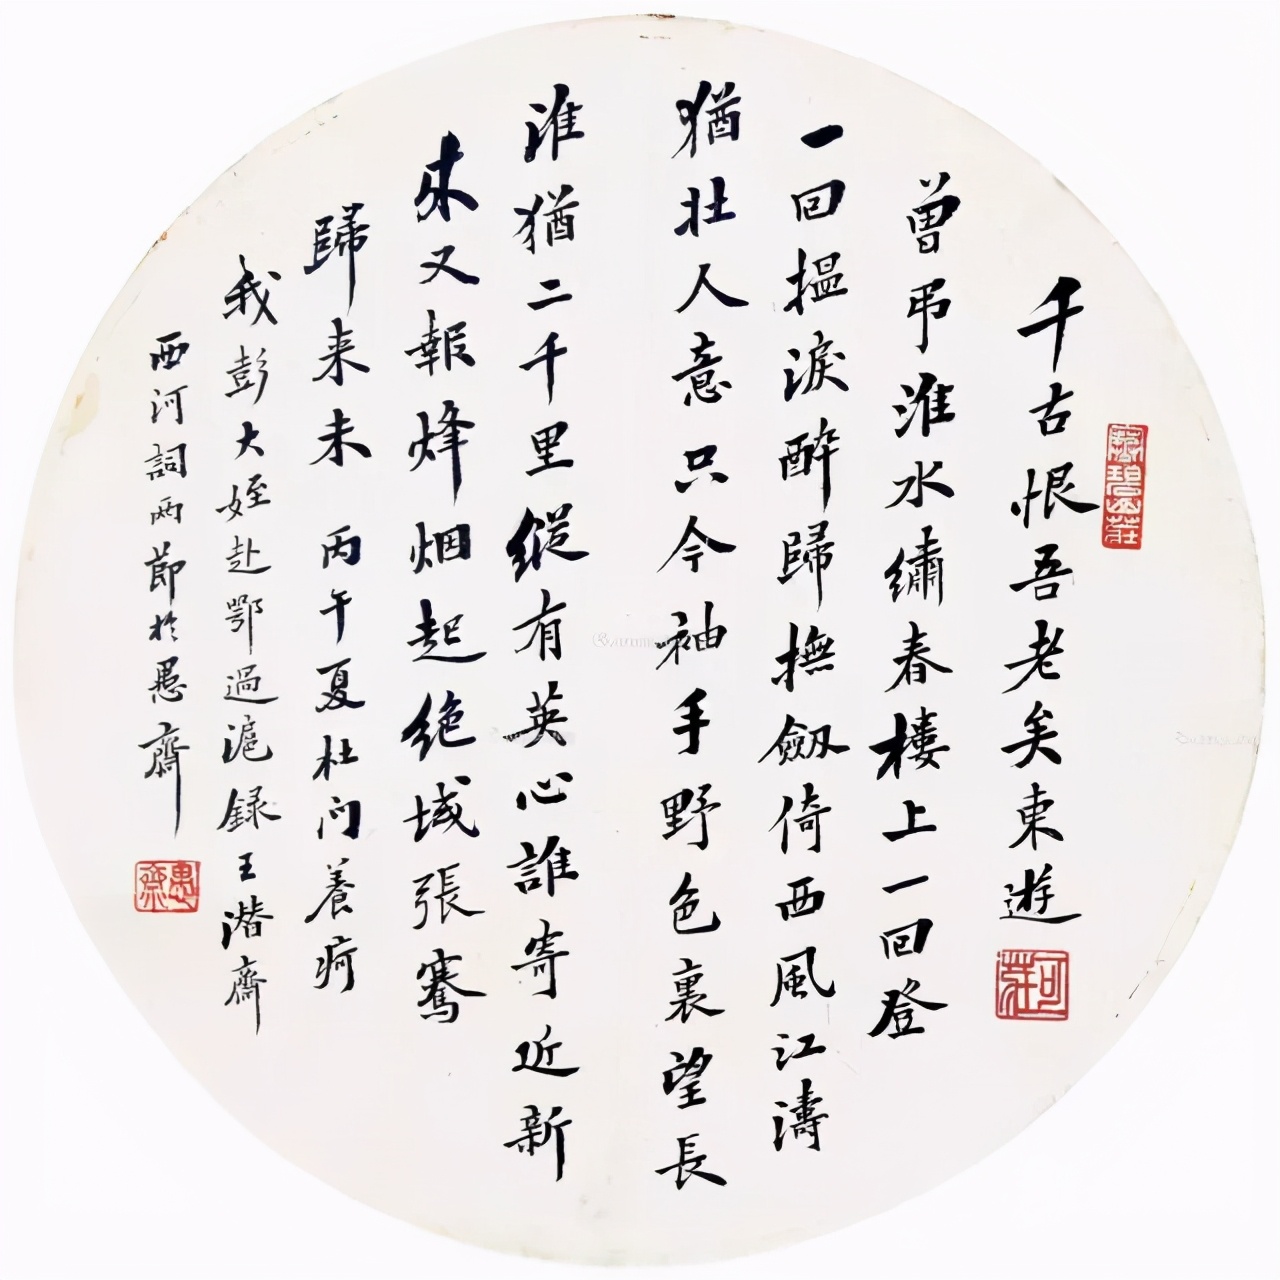 千古恨吾老矣東遊
曾弔淮水繡春樓上一回登
一回搵淚醉歸撫劔倚西風江濤
猶壯人意只今袖手野色裏望長
淮猶二千里縱有英心誰寄近新
來又報烽烟起絶域張騫
歸来未 丙午夏杜门養疴
我彭大姪赴鄂過滬録王潛齋
西河詞兩節於愚齋
碧山莊
可莊
愚齋